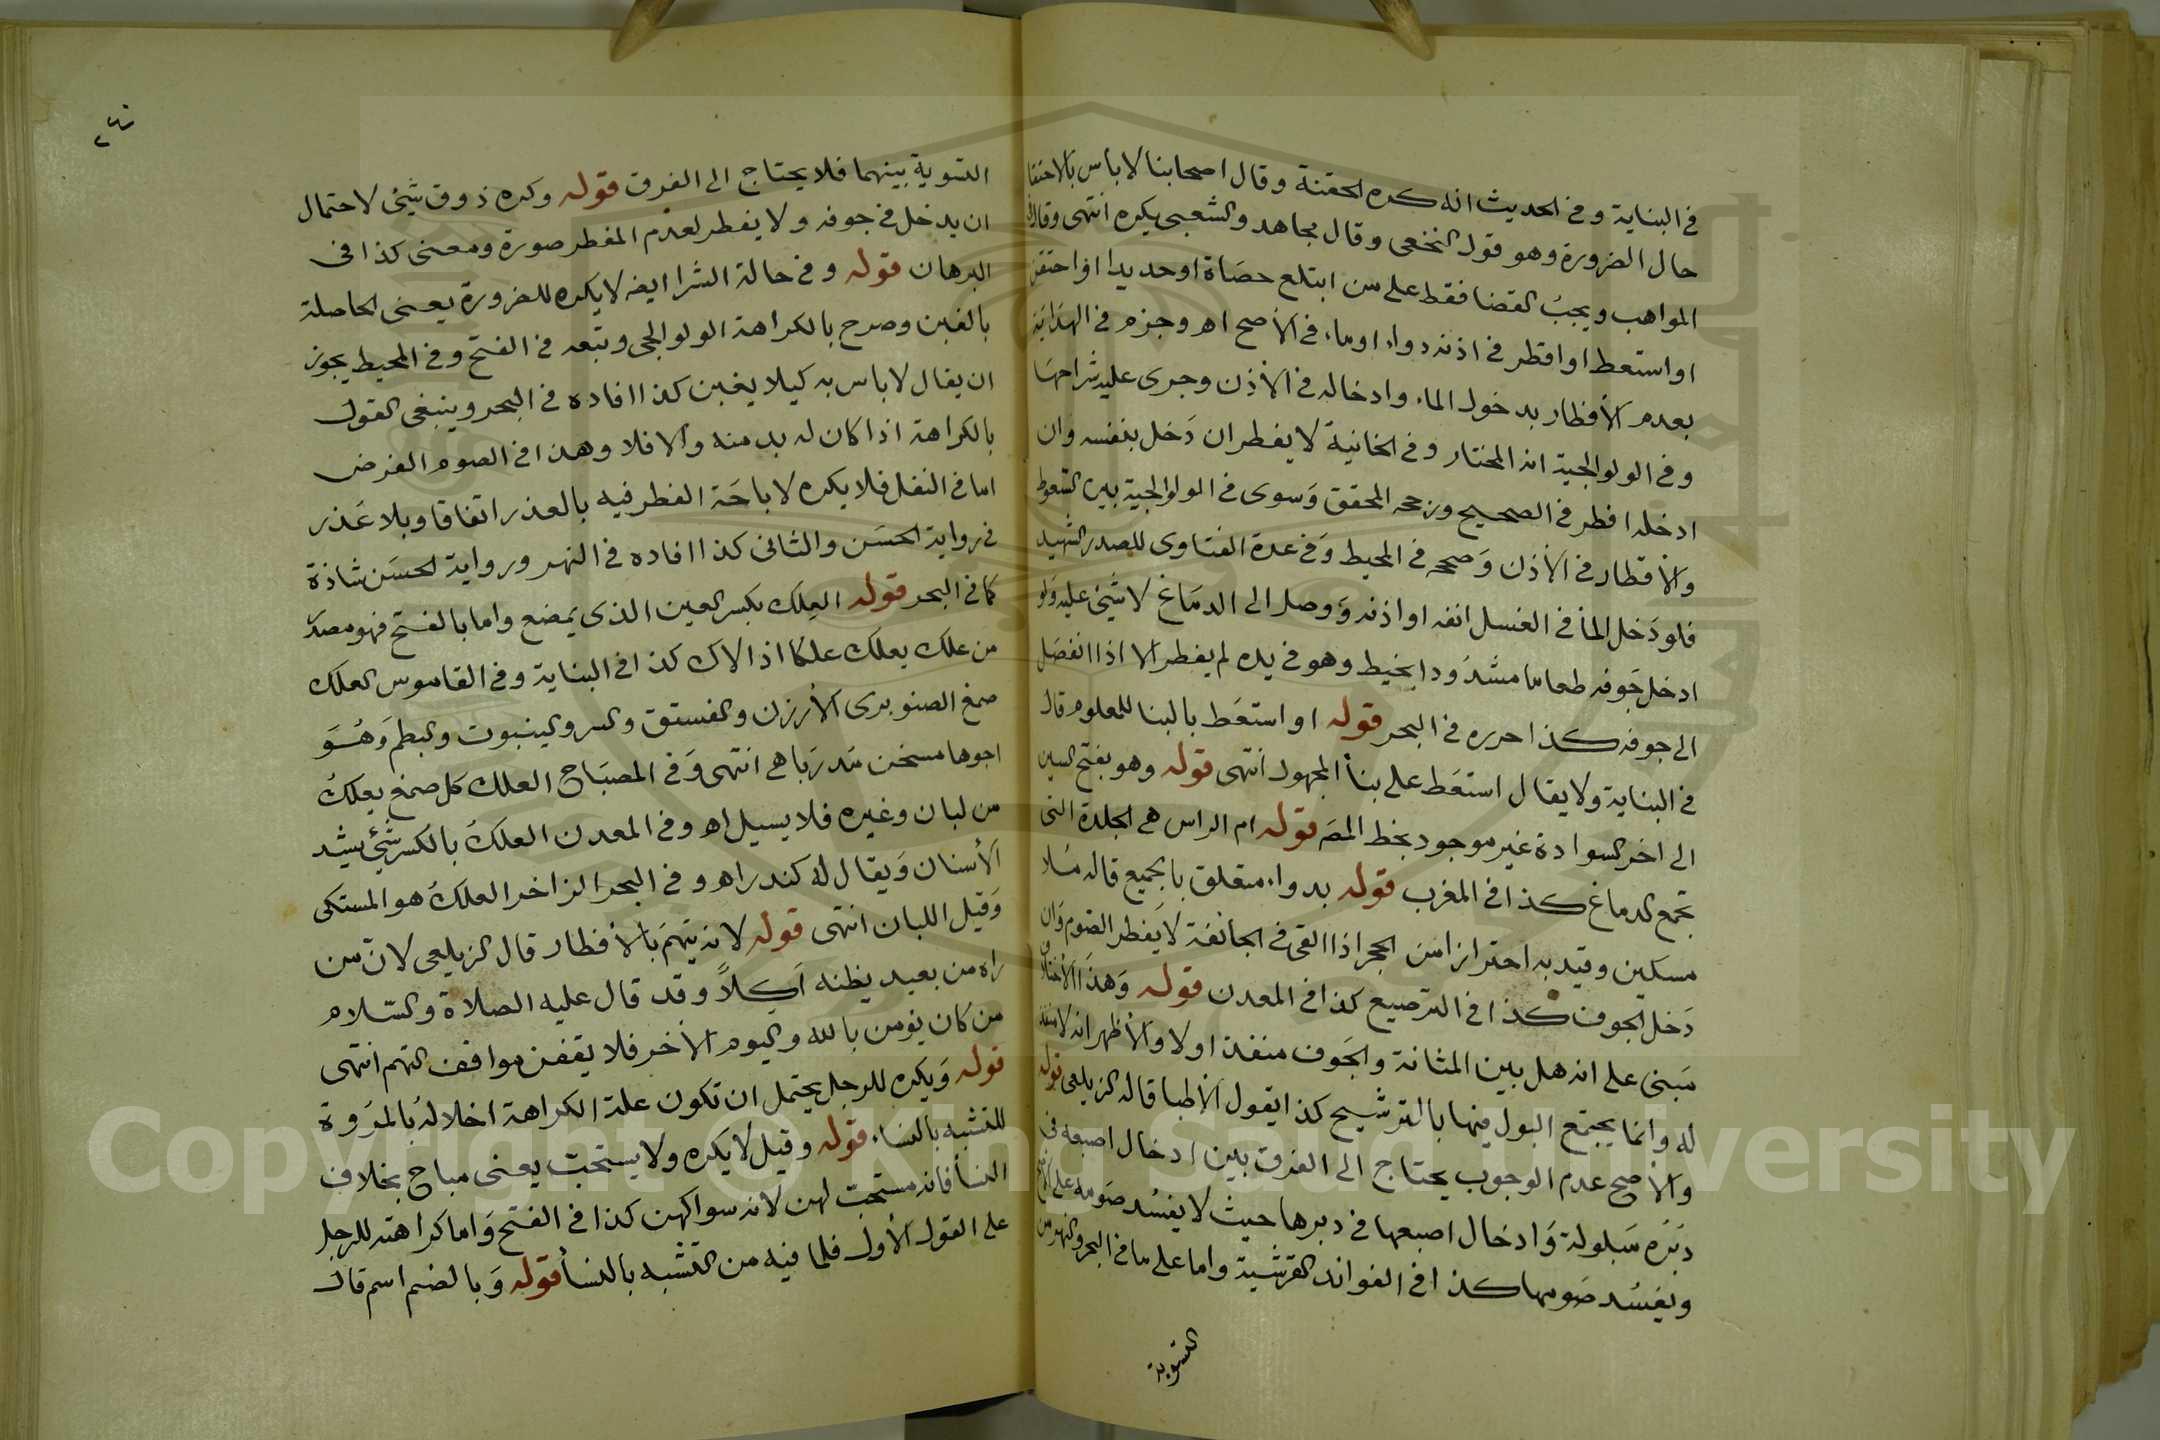 في البناية وفي الحديث انه كره الحقنة وقال اصحابنا لا باس بالاحتقا
حال الضرورة وهو قول النخعي وقال مجاهد والشعبي يكره انتهى وقال في
المواهب ويجب القضا فقط على من ابتلع حصاة او حديدا او احتقن
او استعط او اقطر في اذنه دواء او ماء في الأصح اه وجزم في الهداية
بعدم الأفطار بدخول الماء وادخاله في الأذن وجرى عليه شراحها
وفي الولوالجية انه المختار وفي الخانية لا يفطر ان دخل بنفسه وان
ادخله افطر في الصحيح ورجحه المحقق وسوى في الولوالجية بين السعوط
والأقطار في الأذن وصححه في المحيط وفي عدة الفتاوى للصدر الشهيد
فلو دخل الماأ في الغسل انفه او اذنه ووصل الى الدماغ لا شئ عليه ولو
ادخل جوفه طعاما مشدودا بخيط وهو في يده لم يفطر الا اذا انفصل
الى جوفه كذا حرره في البحر قوله او استعط بالبنا للمعلوم قال
في البناية ولا يقال استعط على بنأ المجهول انتهى قوله وهو بفتح السين
الى اخر السوادة غير موجود بخط المص قوله ام الراس هي الجلدة التى
تجمع الدماغ كذا في المغرب قوله بدواء متعلق بالجميع قاله منلا
مسكين وقيد به احترازا من الحجر اذا القي في الجائفة لا يفطر الصوم وان
دخل الجوف كذا في الترصيع كذا في المعدن قوله وهذا الأختلاف
مبنى على انه هل بين المثانة والجوف منفذ اولا والأظهر انه لا منفذ
له وانما يجتمع البول فيها بالترشيح كذا يقول الأطبا قاله الزيلعي قوله
والأصح عدم الوجوب يحتاج الى الفرق بين ادخال اصبعه في
دبره مبلولة وادخال اصبعها في دبرها حيث لا يفسد صومه على الأصح
ويفسد صومها كذا في الفوائد القرشية واما على ما في البحر والنهر من
التسوية
التسوية بينهما فلا يحتاج الى الفرق قوله وكره ذوق شئ لاحتمال
ان يدخل في جوفه ولا يفطر لعدم المفطر صورة ومعنى كذا في
البرهان قوله وفي حالة الشرا ايضا لا يكره للضرورة يعنى الحاصلة
بالغبن وصرح بالكراهة الولوالجى وتبعه في الفتح وفي المحيط يجوز
ان يقال لا باس به كيلا يغبن كذا افاده في البحر وينبغى القول
بالكراهة اذا كان له بد منه والا فلا وهذا في الصوم الفرض
اما في النفل فلا يكره لاباحة الفطر فيه بالعذر اتفاقا وبلا عذر
في رواية الحسن والثانى كذا افاده في النهر ورواية الحسن شاذة
كما في البحر قوله العلك بكسر العين الذى يمضغ واما بالفتح فهو مصدر
من علك يعلك علكا اذا لاك كذا في البناية وفي القاموس العلك
صمغ الصنوبرى الأرزن والفستق والسرو والينبوت والبطم وهو
اجودها مسخن مدر باهى انتهى وفي المصباح العلك كل صمغ يعلك
من لبان وغيره فلا يسيل اه وفي المعدن العلك بالكسر شئ يشد
الأسنان ويقال له كندر اه وفي البحر الزاخر العلك هو المستكى
وقيل اللبان انتهى قوله لانه يتهم بالأفطار قال الزيلعى لان من
راه من بعيد يظنه آكلاً وقد قال عليه الصلاة والسلام
من كان يؤمن بالله واليوم الأخر فلا يقفن مواقف التهم انتهى
قوله ويكره للرجل يحتمل ان تكون علة الكراهة اخلاله بالمروة
للتشبه بالنساء قوله وقيل لا يكره ولا يستحب يعنى مباح بخلاف
النسأ فانه مستحب لهن لانه سواكهن كذا في الفتح واما كراهته للرجل
على القول الأول فلما فيه من التشبه بالنسأ قوله وبالضم اسم قال
Copyright © King Saud University